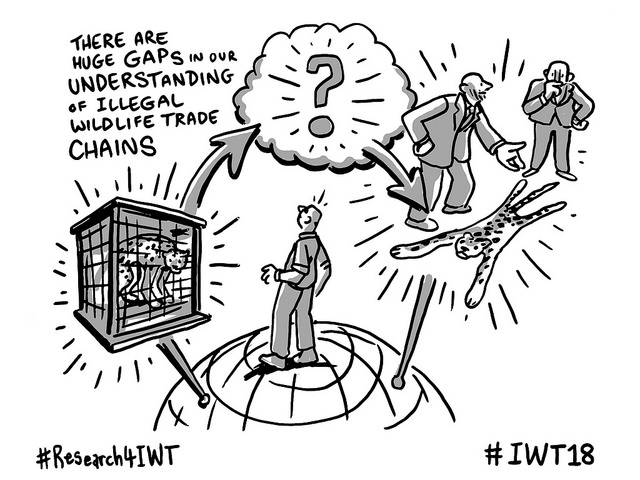 THERE ARE
HUGE GAPS IN OUR
UNDERSTANDING
OF ILLEGAL
WILDLIFE TRADE
CHAINS
?
#Research4IWT
#IWT18